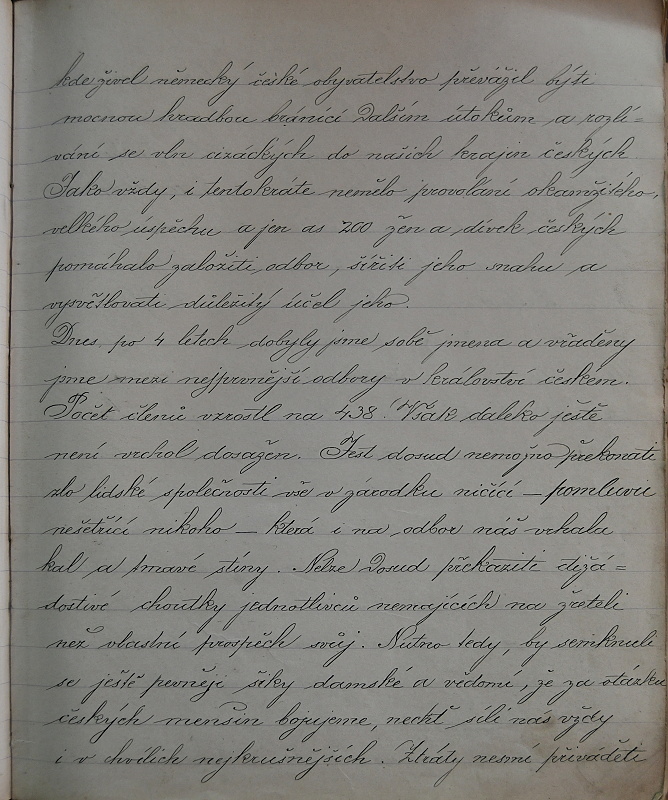 kde živel německý české obyvatelstvo převážil býti
mocnou hradbou bránící dalším útokům a rozlí=
vání se vln cizáckých do našich krajin českých
Jako vždy, i tentokráte nemělo provolání okamžitého,
velkého úspěchu a jen as 200 žen a dívek českých
pomáhalo založiti odbor, šířiti jeho snahu a
vysvětlovati důležitý účel jeho.
Dnes po 4 letech dobyly jsme sobě jmena a vřaděny
jsme mezi nejprvnější odbory v království českém.
Počet členů vzrostl na 438! Však daleko ještě
není vrchol dosažen. Jest dosud nemožno překonati
zlo lidské společnosti vše v zárodku ničící – pomluvu
nešetřící nikoho – která i na odbor náš vrhala
kal a tmavé stíny. Nelze dosud překaziti ctižá=
dostivé choutky jednotlivců nemajících na zřeteli
než vlastní prospěch svůj. Nutno tedy, by semknuli
se ještě pevněji šiky damské a vědomí, že za otázku
českých menšin bojujeme, nechť sílí nás vždy
i v chvílich nejkrušnějších. Ztráty nesmí přiváděti